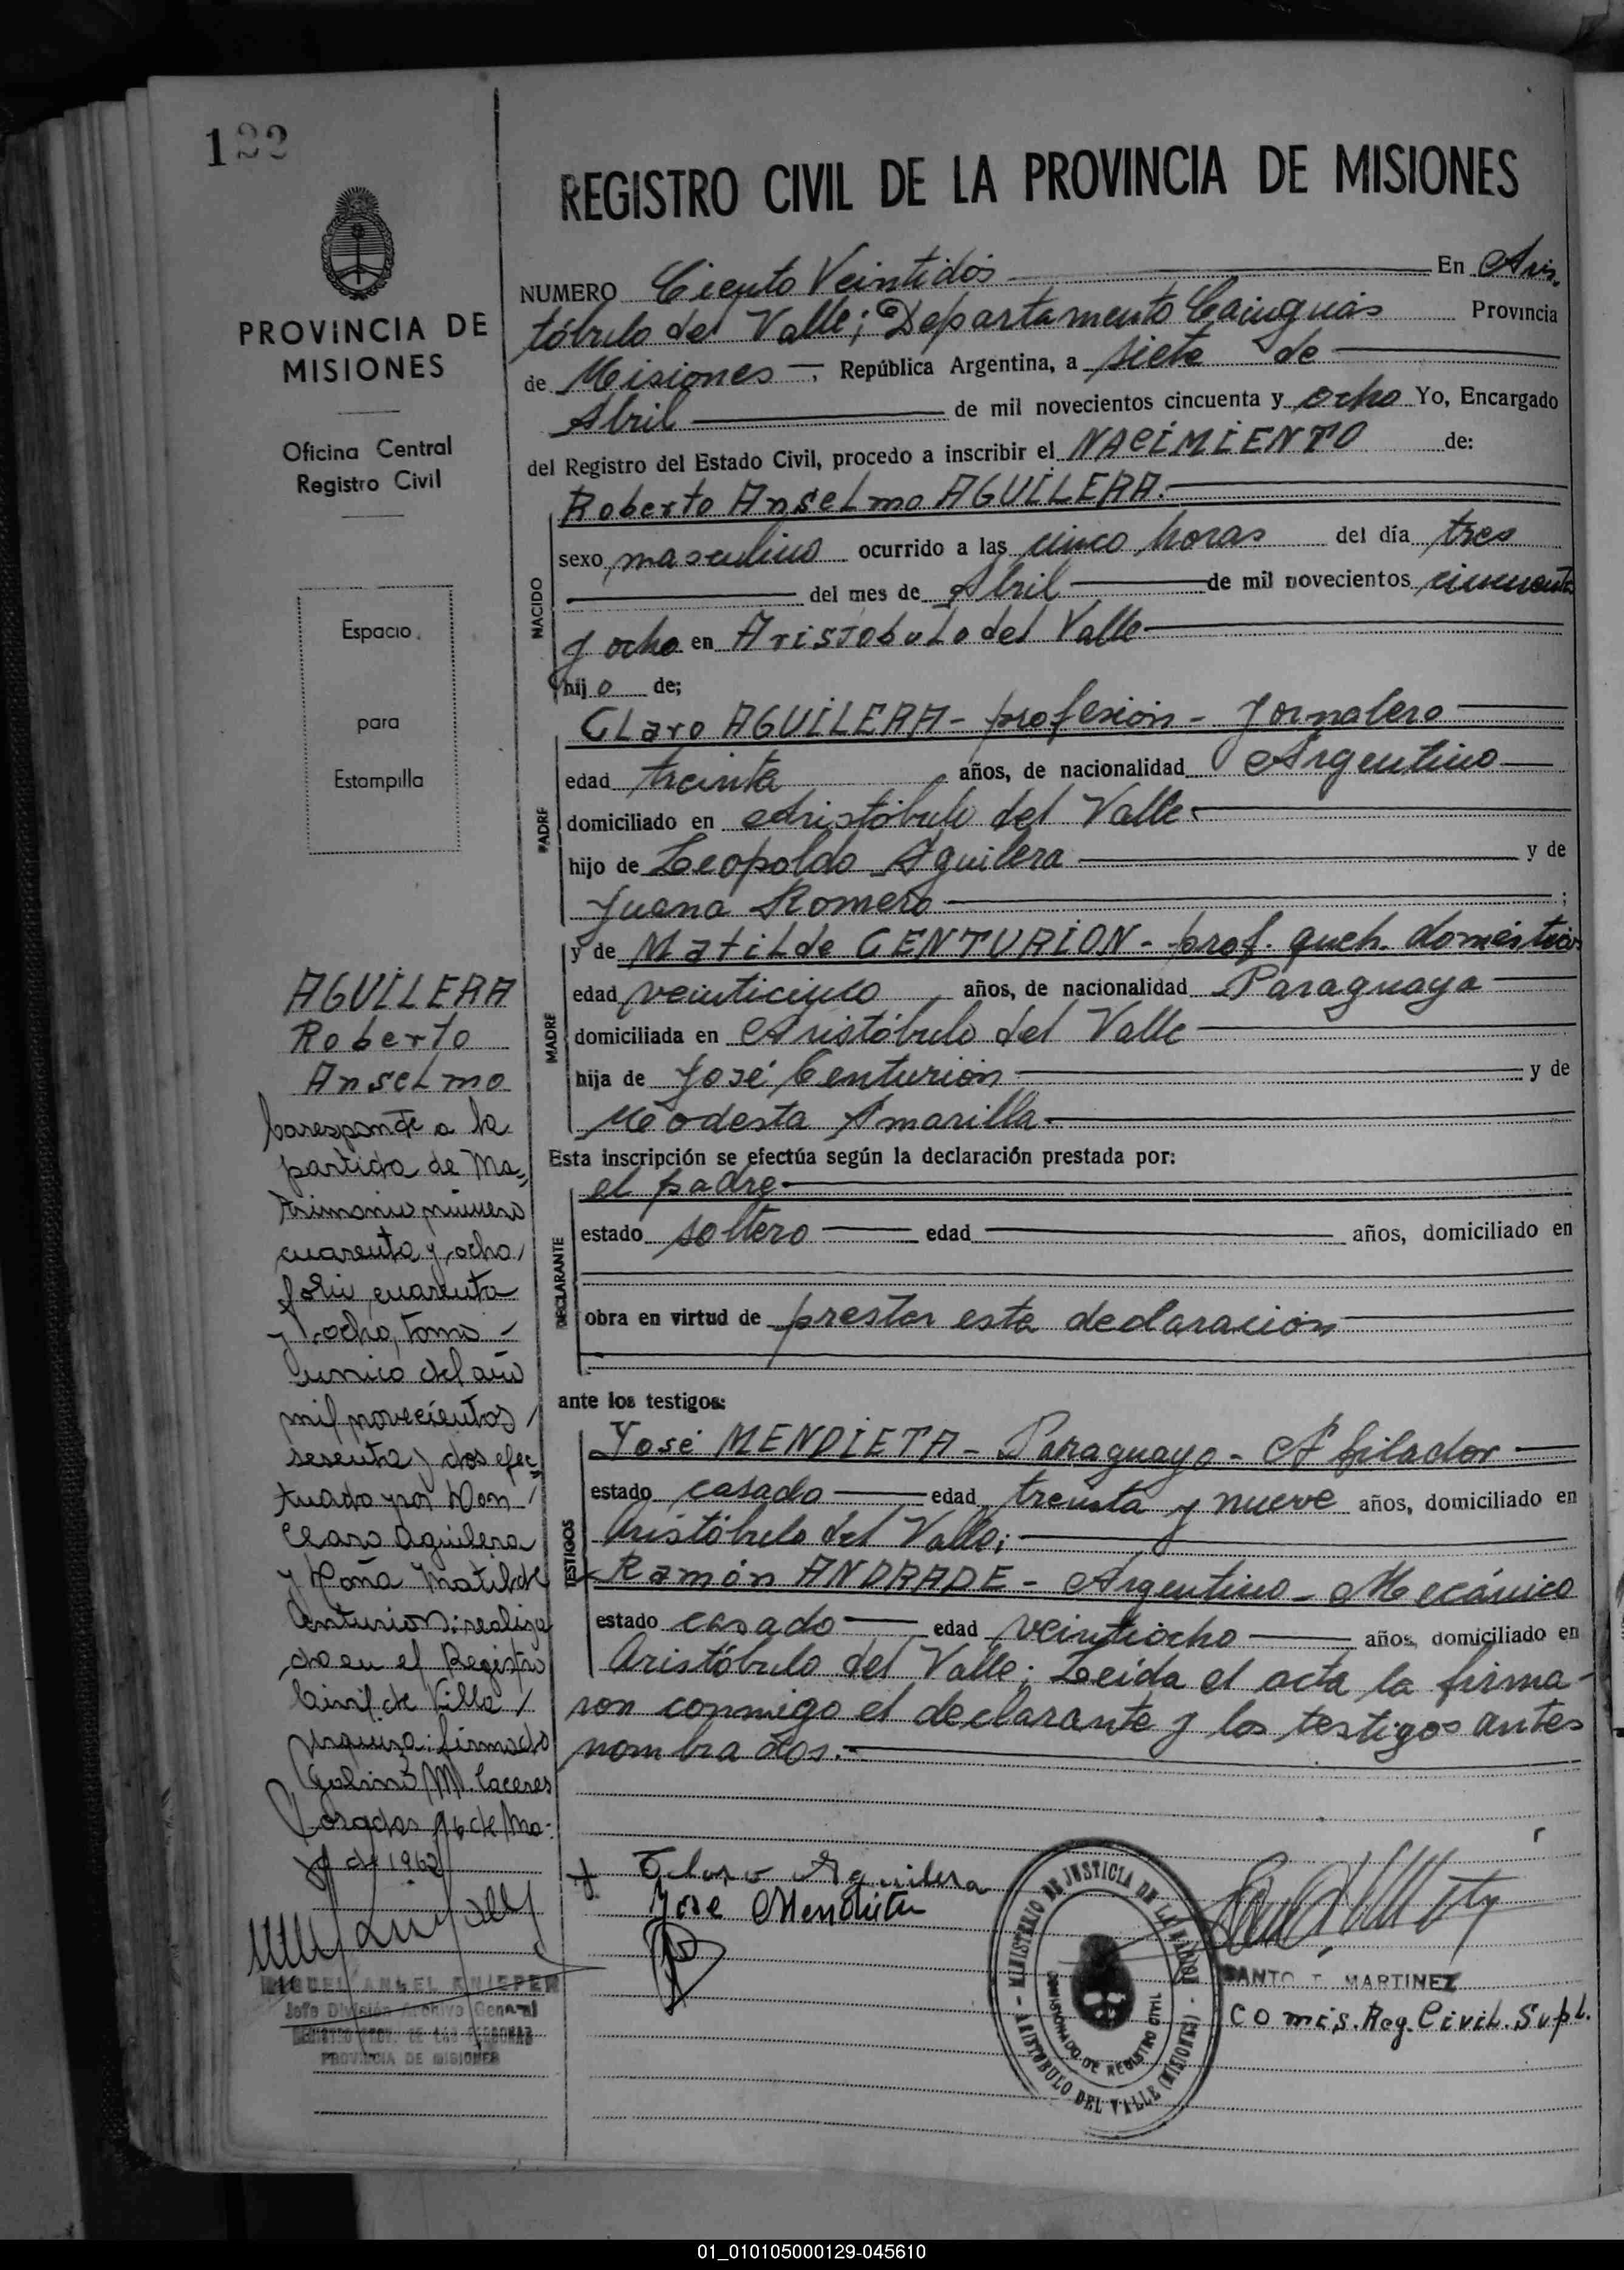 122
PROVINCIA DE
MISIONES
Oficina Central
Registro Civil
Espacio
para
Estampilla
REGISTRO CIVIL DE LA PROVINCIA DE MISIONES
NUMERO Ciento Veintidós En Aris
tóbulo del Valle; Departamento Cainguás Provincia
de Misiones, República Argentina, a siete de
Abril de mil novecientos cincuenta y ocho Yo, Encargado
del Registro del Estado Civil, procedo a inscribir el NACIMIENTO de:
Roberto Anselmo AGUILERA.
NACIDO
sexo masculino ocurrido a las cinco horas del día tres
del mes de Abril de mil novecientos cincuenta
y ocho en Aristobulo del Valle
hijo de;
PADRE
Claro AGUILERA - profesion - Jornalero
edad treinta años, de nacionalidad Argentino
domiciliado en Aristóbulo del Valle
hijo de Leopoldo Aguilera y de
Juana Romero ;
MADRE
y de Matilde CENTURION - prof. queh. domésticos
edad veinticinco, años, de nacionalidad Paraguaya
domiciliada en Aristóbulo del Valle
hija de José Centurión y de
Modesta Amarilla.
Esta inscripción se efectúa según la declaración prestada por:
DECLARANTE
el padre
estado soltero edad años, domiciliado en
obra en virtud de prestar esta declaración
ante los testigos:
TESTIGOS
José MENDIETA - Paraguayo - Afilador
estado casado edad treinta y nueve años, domiciliado en
Aristóbulo del Valle;
Ramón ANDRADE - Argentino - Mecánico
estado casado edad veintiocho años, domiciliado en
Aristóbulo del Valle; Leída el acta la firma-
ron conmigo el declarante y los testigos antes
nombrados.-
AGUILERA
Roberto
Anselmo
Corresponde a la
partida de Ma-
trimonio número
cuarenta y ocho,
folio cuarenta
y ocho, tomo
único del año
mil novecientos
sesenta y dos efec-
tuado por Don
Claro Aguilera
y Doña Matilde
Centurion: realiza
do en el Registro
Civil de Villa
Urquiza: firmado
M. Caceres
Posadas de Ma-
yo de 1962
MIGUEL ANGEL KNIEPER
Jefe División Archivo General
REGISTRO PROV. DE LAS PERSONAS
PROVINCIA DE MISIONES
Claro Aguilera
Jose Mendieta
MINISTERIO DE JUSTICIA DE LA NACION
COMISIONADO DE REGISTRO CIVIL
ARISTOBULO DEL VALLE (MISIONES)
SANTO T. MARTINEZ
Comis. Reg. Civil. Supl.
01_010105000129-045610